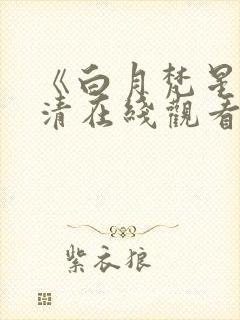 《白月梵星
清在綫觀看
紫衣狼